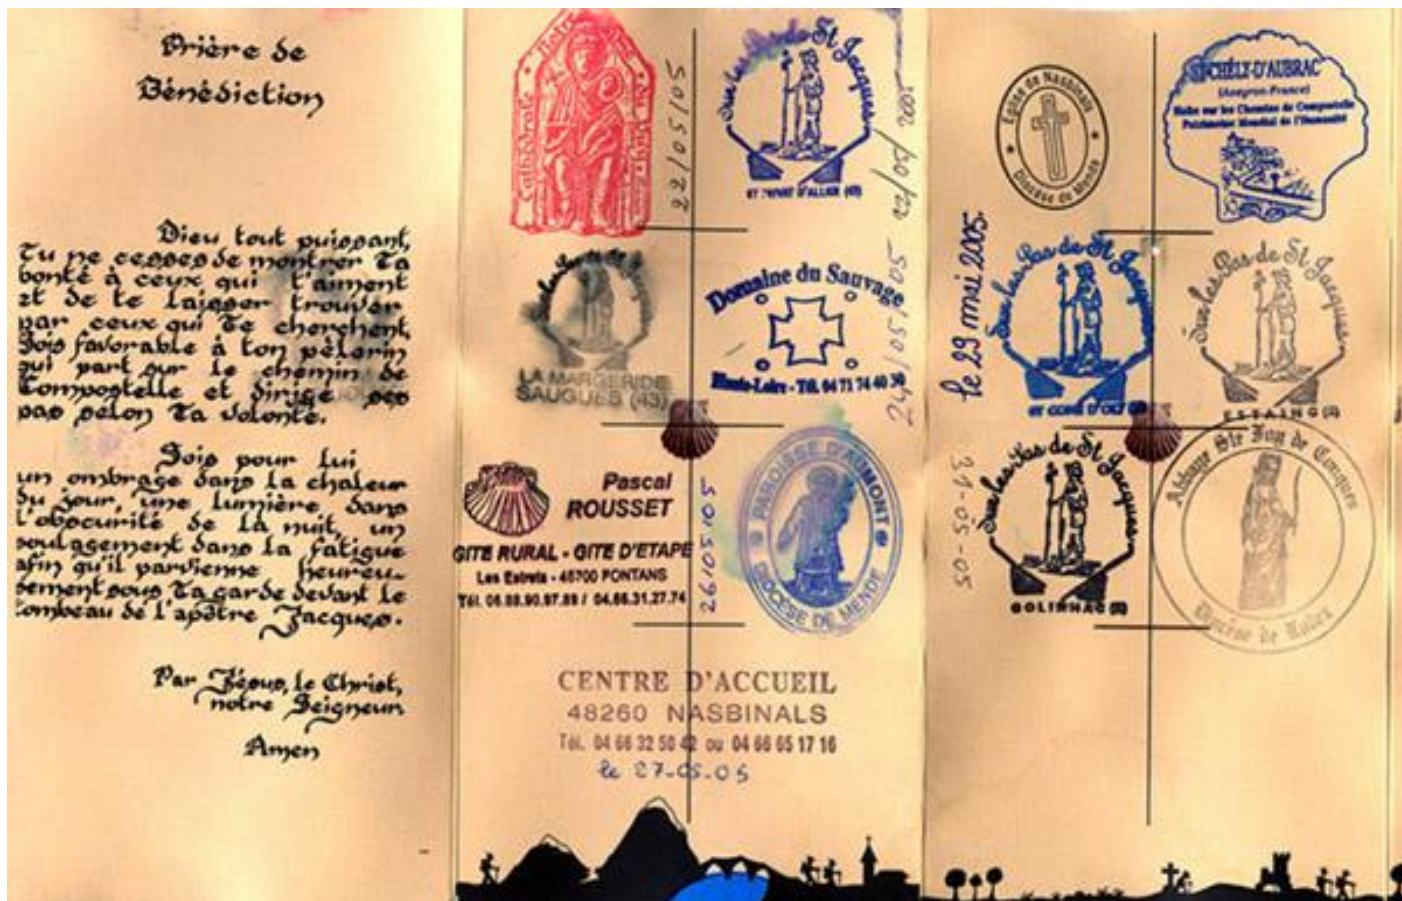 Prière de
Bénédiction
Dieu tout puissant,
Tu ne cesses de montrer Ta
bonté à ceux qui t'aiment
et de te laisser trouver
par ceux qui Te cherchent,
Sois favorable à ton pèlerin
qui part sur le chemin de
Compostelle et dirige ses
pas selon Ta volonté.
Sois pour lui
un ombrage dans la chaleur
du jour, une lumière dans
l'obscurité de la nuit, un
soulagement dans la fatigue
afin qu'il parvienne heureu-
sement sous Ta garde devant le
tombeau de l'apôtre Jacques.
Par Jésus, le Christ,
notre Seigneur
Amen
Cathédrale Notre Dame du Puy
22/05/05
Sur les Pas de St Jacques
ST PRIVAT D'ALLIER (43)
Sur les Pas de St Jacques
LA MARGERIDE
SAUGUES (43)
Domaine du Sauvage
Haute-Loire - Tél. 04 71 74 40 30
24/05/05
Pascal
ROUSSET
GITE RURAL - GITE D'ETAPE
Les Estrets - 48700 FONTANS
Tél. 06.88.90.97.89 / 04.66.31.27.74
26/05/05
PAROISSE D'AUMONT
DIOCESE DE MENDE
CENTRE D'ACCUEIL
48260 NASBINALS
Tél. 04 66 32 50 42 ou 04 66 65 17 16
le 27-05-05
Eglise de Nasbinals
Diocèse de Mende
ST CHÉLY-D'AUBRAC
(Aveyron-France)
Halte sur les Chemins de Compostelle
Patrimoine Mondial de l'Humanité
le 29 mai 2005
Sur les Pas de St Jacques
ST COME D'OLT
Sur les Pas de St Jacques
ESTAING
31-05-05
Sur les Pas de St Jacques
GOLINHAC
Abbaye Ste Foy de Conques
Diocèse de Rodez